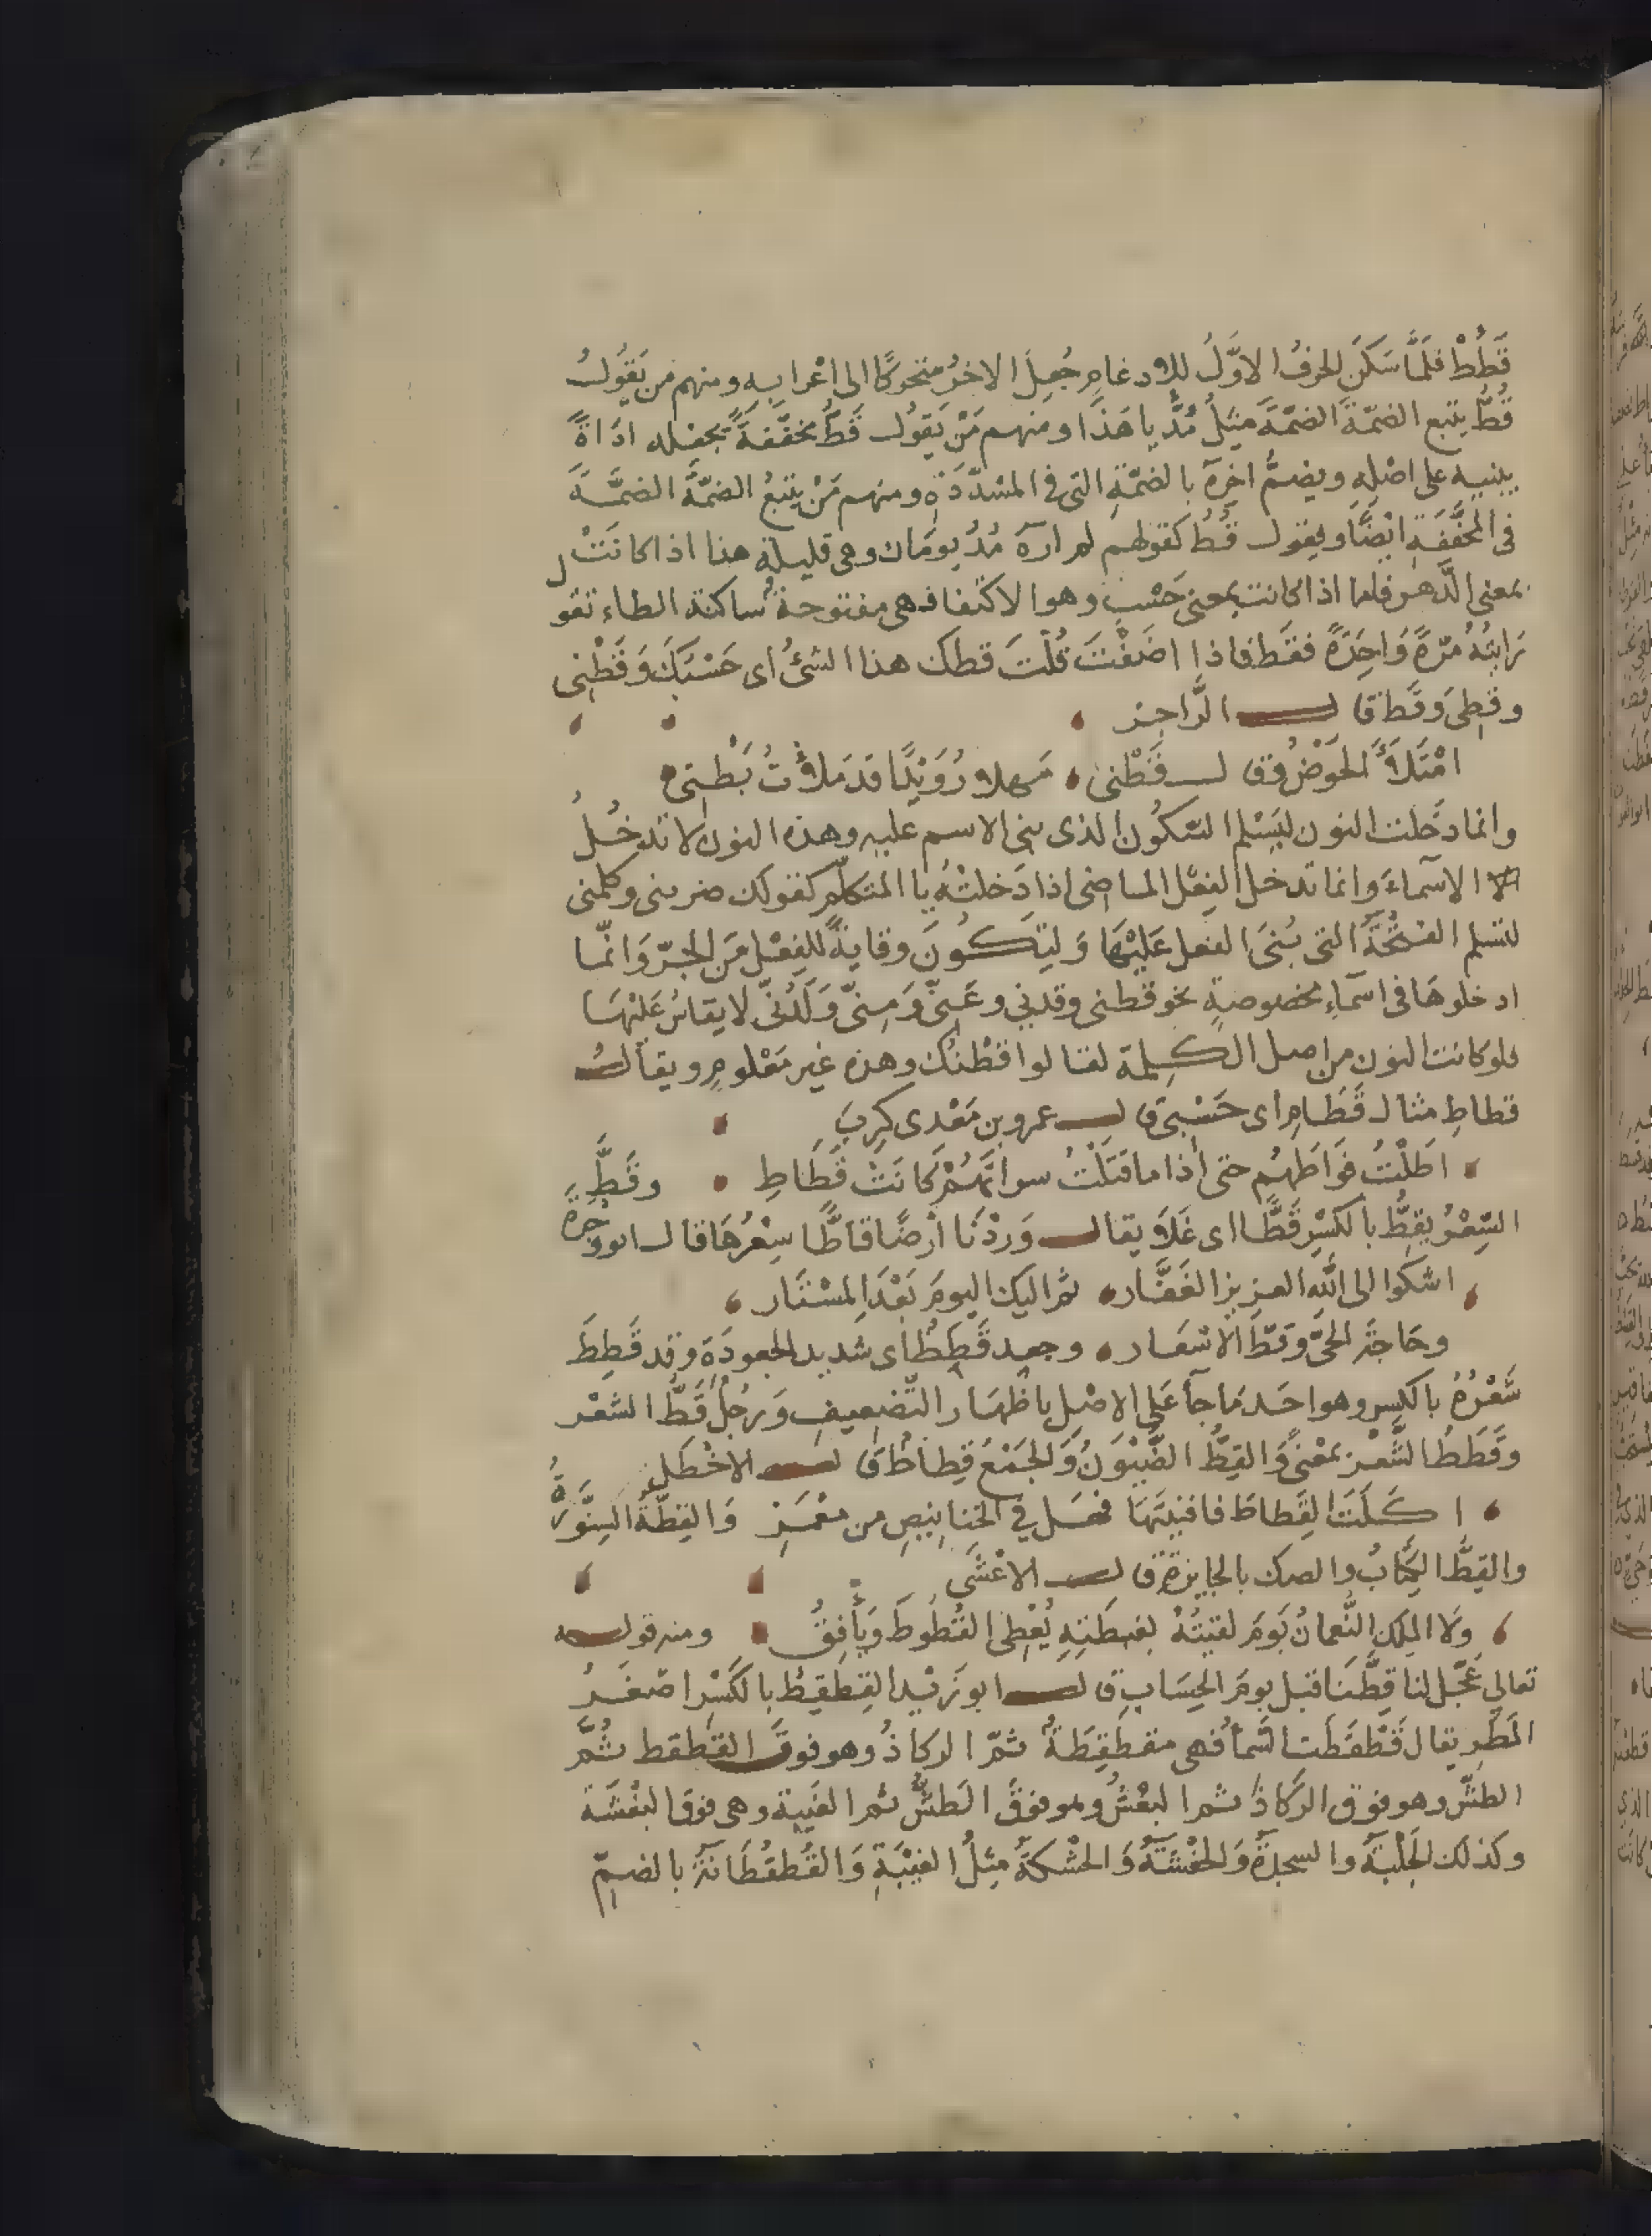 قَطُطْ فلَمَّا سَكَنَ الحرفُ الاوَّلُ للادغامِ جُعِلَ الاخرُ متحركًا الى اعْرابه ومنهم من يَقُولُ
قُطُّ يتبع الضمّةَ الضمّةَ مثلُ مُدُّ يا هَذَا ومنهم مَنْ يَقُول قَطُ مخفَّفةً يجعله اداةً
يبنيه على اصْلِهِ ويضمُّ اخِرَهُ بالضمّةِ التى فى المشدّدَةِ ومنهم مَنْ يتبعُ الضمَّةَ الضمَّةَ
فى المخفَّفَةِ ايْضًا ويقول قُطُ كقولهم لم ارَهُ مُذُ يومَان وهى قليلة هذا اذا كانَتْ
بمعنى الدَّهر فاما اذا كانت بمعنى حَسْبِ وهو الاكتفا فهى مفتوحة ساكنة الطاء تقول
رَايتُهُ مرّةً وَاحِدَةً فقَط فاذا اضَفْتَ قُلْتَ قطك هذا الشئُ اى حَسْبُكَ وَقَطْنِى
وقطِى وقَط قال الرَّاجز
امْتَلأَ الحَوْضُ وقال قَطْنى مَهلا رُوَيْدًا قد مَلأتُ بَطْنى
وانما دَخلت النون ليَسْلم السّكُون الذى بنى الاسم عليه وهذه النون لا تدخُلُ
الا الاسماءَ وانما تدخل الفِعْل الماضى اذا دَخلَتْهُ يا المتكلّم كقولك ضربنى وكلمنى
لتسلم الفتْحَةُ التى بُنىَ الفعل عَليْهَا وَلِيَكُونَ وقايةً للفِعْل مَن الجرّ وَانّمَا
ادخلوهَا فى اسْماءٍ مخصوصةٍ نحو قطنى وقدنِى وعَنّى وَمِنّى وَلَدُنّى لا يقاسُ عَلَيْهَا
فلو كانت النون من اصل الكلمة لقالوا قطْنُك وهذه غير مَعْلومٍ ويقالُ
قطاطِ مثال قَطَامِ اى حَسْبى قال عمرو بن مَعْدى كربَ
اطَلْتُ فِرَاطَهُم حتى اذا ما قتَلْتُ سراتَهُمْ كَانَتْ قَطَاطِ وقَطَّ
السِّعْرُ يقِطُّ بالكسْرِ قَطًّا اى غَلَا ويقال وَرَدْنَا ارْضًا قاطًّا سِعْرُهَا قال ابو وجزةَ
اشكوا الى اللهِ العزيز الغَفَّار ثمّ اليك اليومَ بَعْدَ المسْتَار
وحَاجَةَ الحىّ وقَطّ الاسْعَار وجعد قَطَطٌ اى شديد الجعودَةِ وقد قَطِطَ
شَعْرُهُ بالكسر وهو احَد مَا جآ عَلى الاصْلِ باظهَار التّضعيف وَرجُلٌ قَطُّ الشعْر
وقَطَطُ الشَّعْر بمعْنىً وَالقِطُّ الضَّيْوَنُ وَالجمْعُ قِطاطٌ قال الاخْطَل
اكَلْتَ القِطاطَ فافنيتَهَا فهَل فى الخنانيصِ من مغمَزِ وَالقِطّةُ السِنَّوْرَةُ
والقِطُّ الكِتَابُ والصك بالجايزةِ قال الاعْشَى
وَلَا المَلِكُ النُّعمانُ يَومَ لقيتُهُ لغبطَتِهِ يُعْطى القُطُوطَ وَيَأفِقُ ومنه قوله
تعالى عَجّل لنا قِطَّنَا قبل يومَ الحِسَابِ قال ابو زَيْد القِطقِطُ بالكَسْرِ اصْغَرُ
المَطَرِ يقال قَطْقَطَت السَّمآُ فهى مقطقِطَةٌ ثمّ الرذاذُ وهو فوقَ القِطْقط ثُمَّ
الطشّ وهو فوق الرذاذ ثم البغْشُ وهو فوقَ الطشّ ثم الغبية وهى فوقَ البغْشَة
وكذلك الحَلْبَةُ والسجدةُ وَالحفْشَةُ وَالحشْكةُ مِثلُ الغبْيَةِ وَالقُطقُطَانَةُ بالضمّ